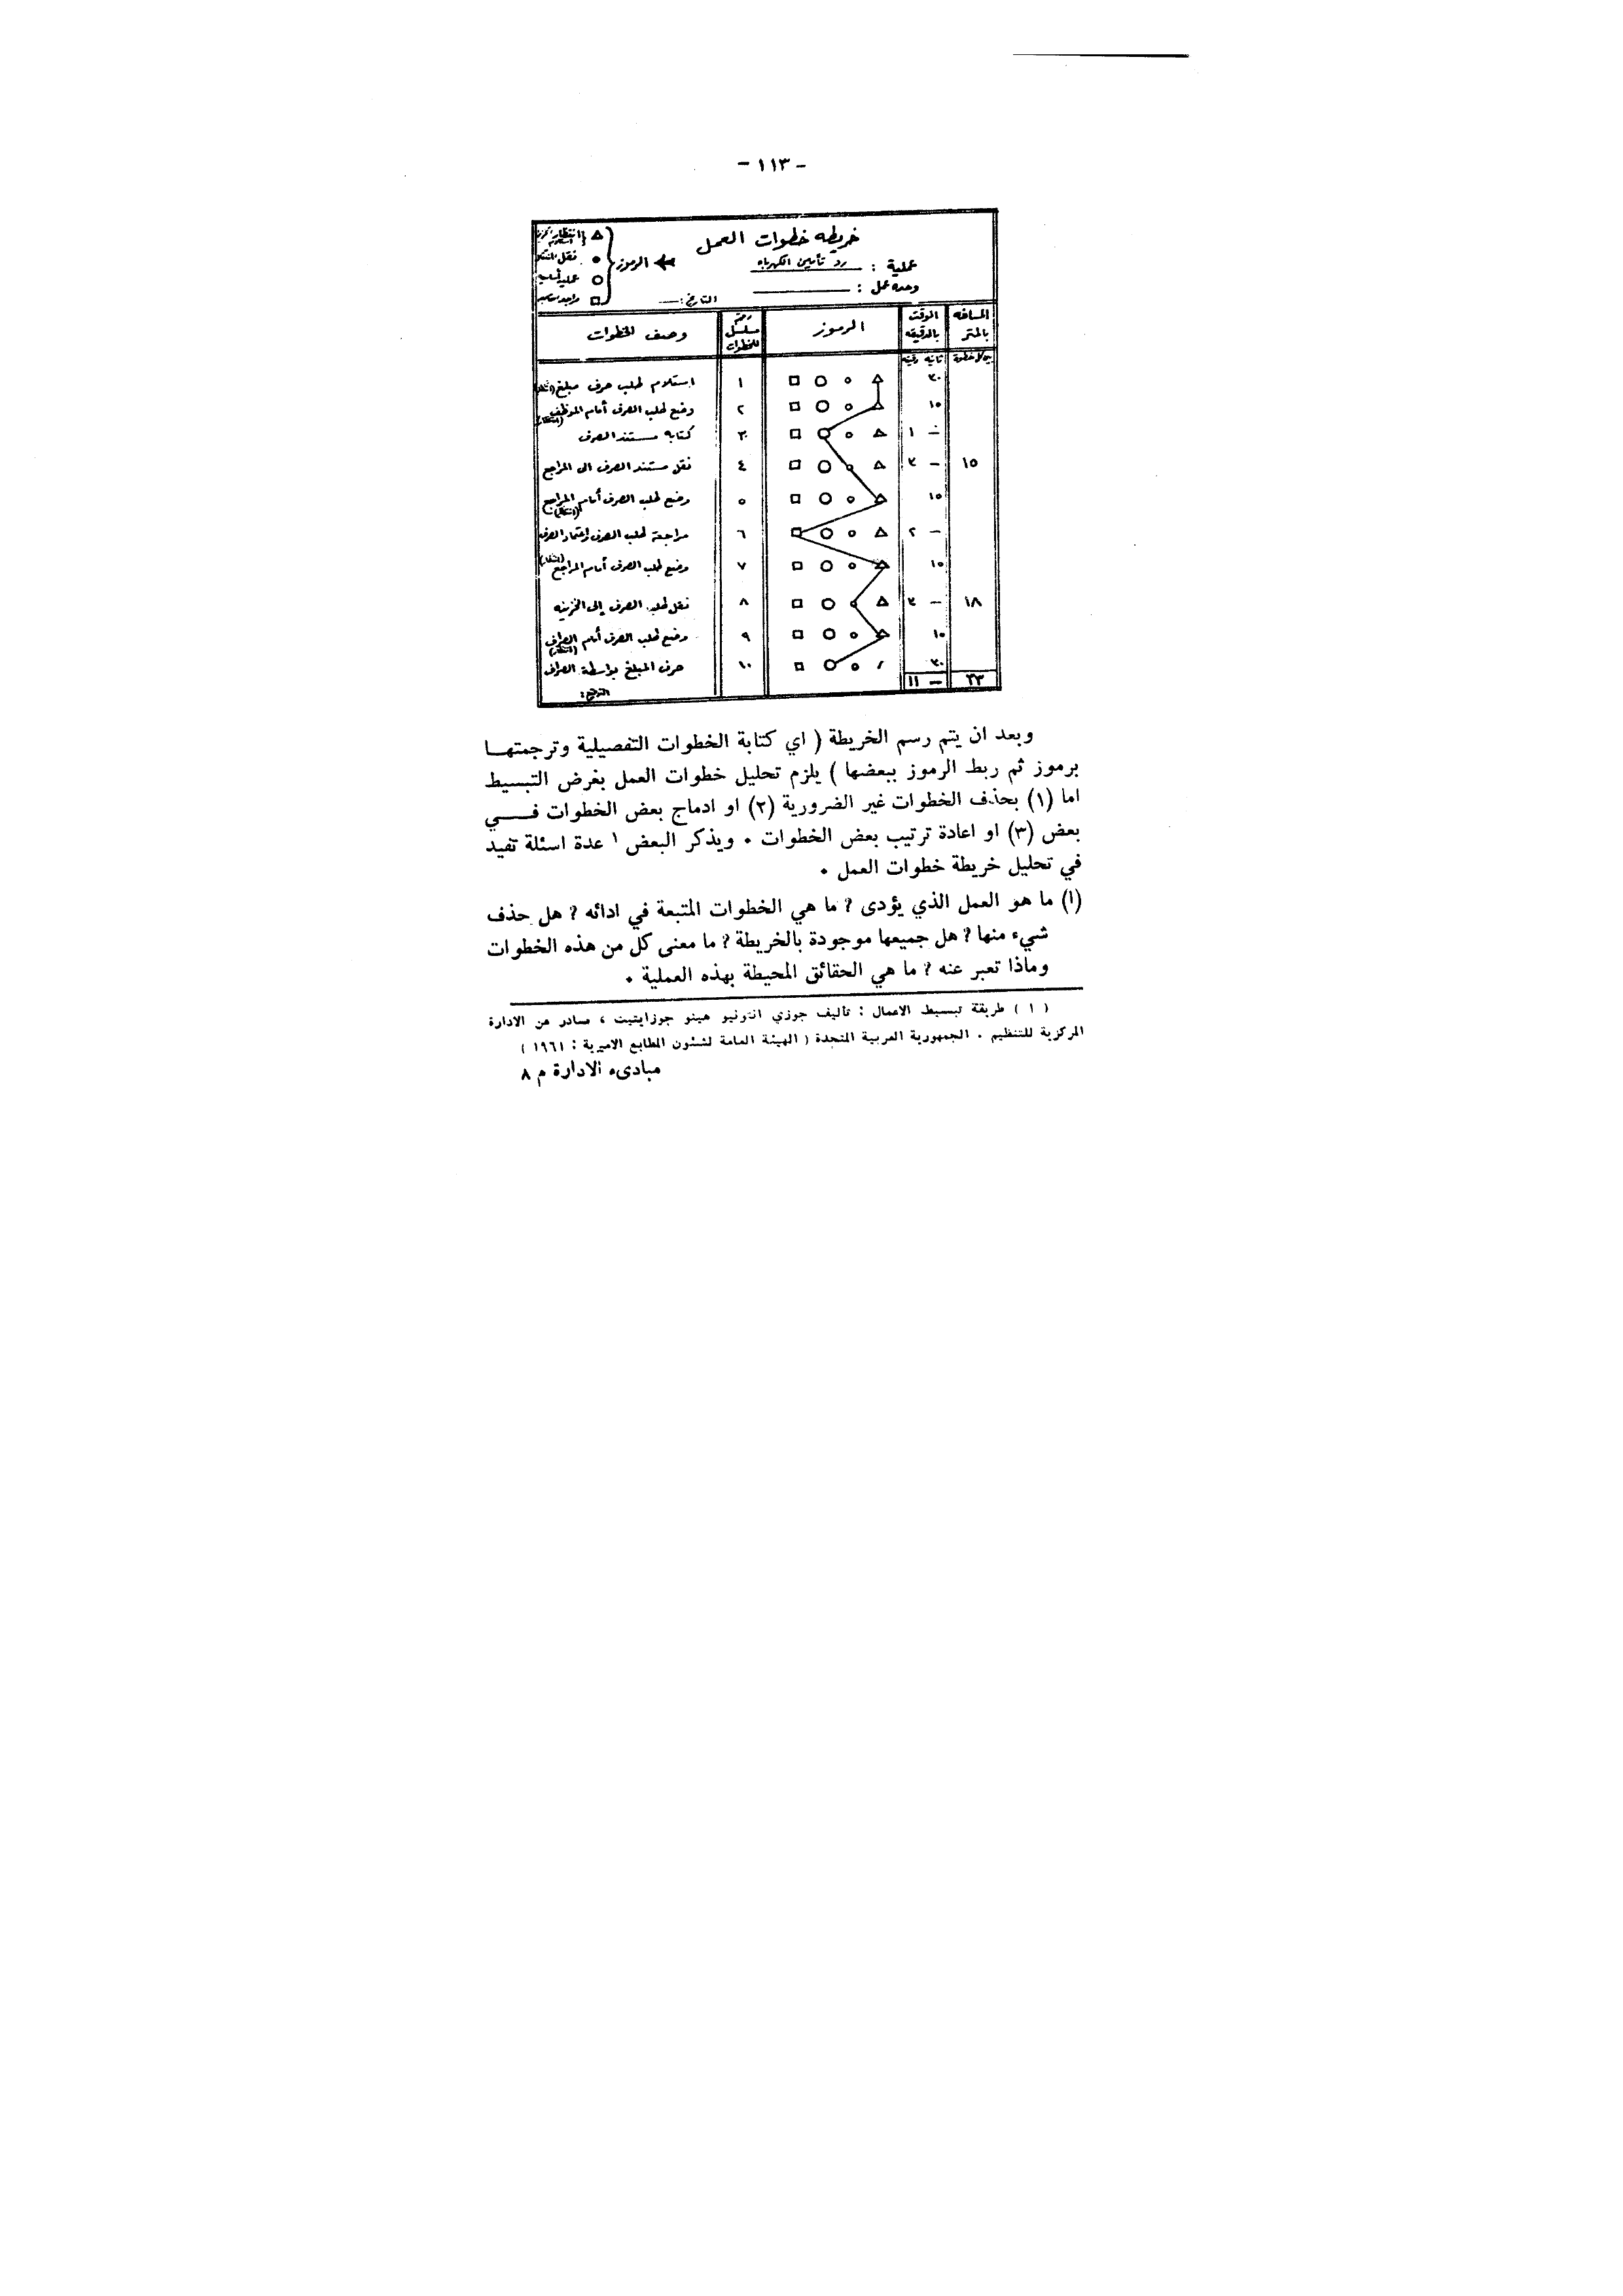 - ١١٣ -
خريطه خطوات العمل
عملية : رد تأمين الكهرباء
وحده عمل :
التاريخ :
الرموز
△ انتظار
• نقل
○ عملية
□ مراجعة
المسافه بالمتر | الوقت بالدقيقه | الرموز | رقم مسلسل للخطوات | وصف الخطوات
ثانيه دقيقه
٣٠ △ ○ ○ □ ١ استلام طلب صرف مبلغ (انتظار)
١٥ △ ○ ○ □ ٢ وضع طلب الصرف أمام الموظف (انتظار)
- ١ △ ○ ○ □ ٣ كتابه مستند الصرف
١٥ - ٣ △ ○ ○ □ ٤ نقل مستند الصرف الى المراجع
١٥ △ ○ ○ □ ٥ وضع طلب الصرف أمام المراجع (انتظار)
- ٢ △ ○ ○ □ ٦ مراجعة طلب الصرف واعتماد الصرف
١٥ △ ○ ○ □ ٧ وضع طلب الصرف أمام المراجع (انتظار)
١٨ - ٣ △ ○ ○ □ ٨ نقل طلب الصرف إلى الخزينه
١٥ △ ○ ○ □ ٩ وضع طلب الصرف أمام الصراف (انتظار)
٣٠ ○ ○ □ ١٠ صرف المبلغ بواسطة الصراف
٣٣ - ١١
وبعد ان يتم رسم الخريطة ( اي كتابة الخطوات التفصيلية وترجمتهـا
برموز ثم ربط الرموز ببعضها ) يلزم تحليل خطوات العمل بغرض التبسيط
اما (١) بحذف الخطوات غير الضرورية (٢) او ادماج بعض الخطوات فـــي
بعض (٣) او اعادة ترتيب بعض الخطوات ٠ ويذكر البعض ١ عدة اسئلة تفيد
في تحليل خريطة خطوات العمل ٠
(١) ما هو العمل الذي يؤدى ؟ ما هي الخطوات المتبعة في ادائه ؟ هل حذف
شيء منها ؟ هل جميعها موجودة بالخريطة ؟ ما معنى كل من هذه الخطوات
وماذا تعبر عنه ؟ ما هي الحقائق المحيطة بهذه العملية ٠
( ١ ) طريقة تبسيط الاعمال : تأليف جوزي انتونيو هينو جوزايتيت ، صادر عن الادارة
المركزية للتنظيم . الجمهورية العربية المتحدة ( الهيئة العامة لشئون المطابع الاميرية : ١٩٦١ )
مبادىء الادارة م ٨